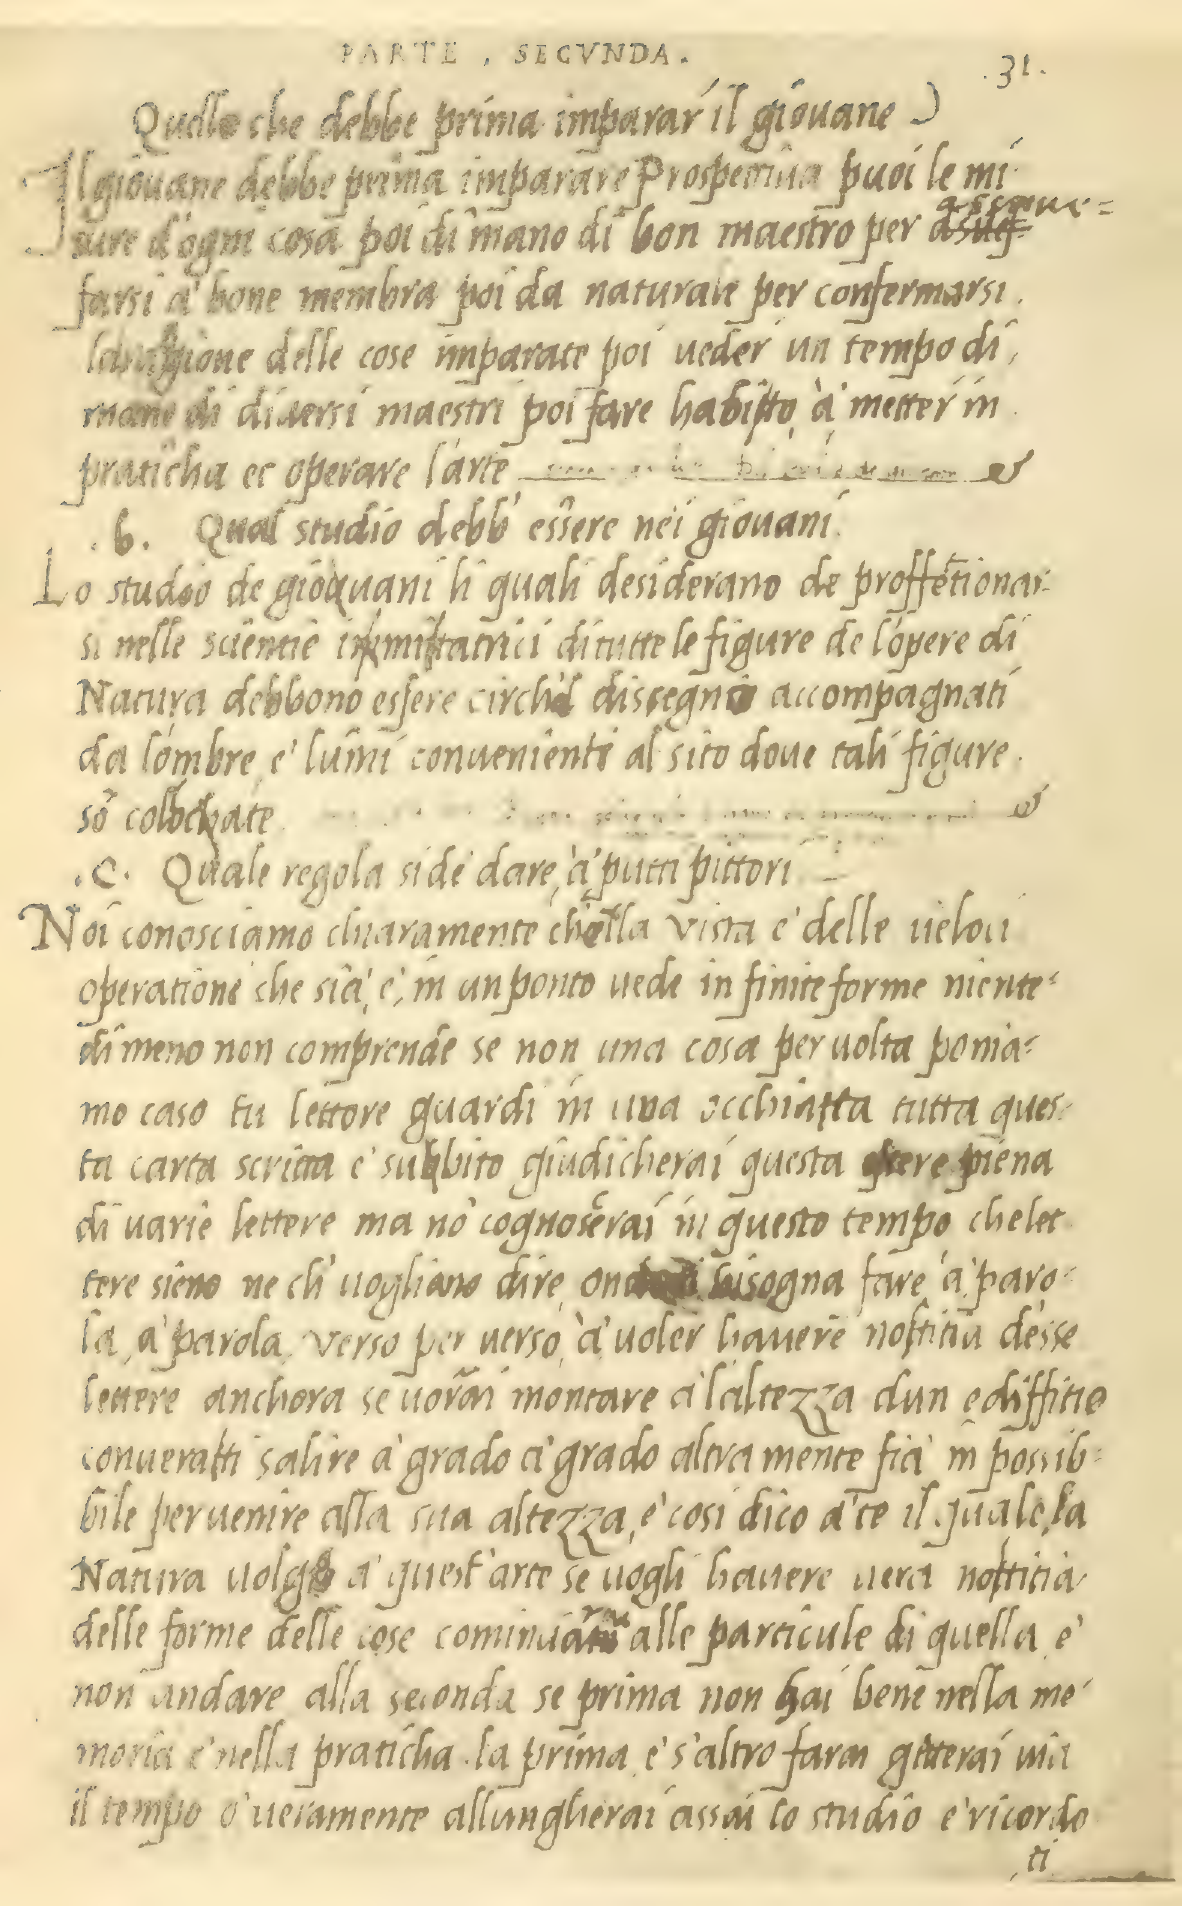 PARTE, SECVNDA.
.31.
Quello che debbe prima imparar il giouane
Il giouane debbe prima imparare Prospettiua puoi le mi
sure d'ogni cosa poi di mano di bon maestro per assue=
farsi a' bone membra poi da naturale per confermarsi
la raggione delle cose imparate poi ueder un tempo di
mane di diuersi maestri poi fare habitto à metter in
praticha et operare l'arte
.b. Qual studio debb' essere nei giouani.
Lo studio de giouani li quali desiderano de proffetionar=
si nelle scientie immitatrici di tutte le figure de l'opere di
Natura debbono essere circha'l dissegno accompagnati
da l'ombre e' lumi conuenienti al sito doue tali figure.
sō collochate
.C. Quale regola si de' dare, à putti pittori
Noi conosciamo chiaramente che la vista e' delle ueloci
operatione che sia', e', in un ponto uede infinite forme niente=
dimeno non comprende se non una cosa per uolta ponia=
mo caso tu lettore guardi in una occhiatta tutta ques=
ta carta scritta e' subbito giudicherai questa essere piena
di uarie lettere ma nō cognoscerai in questo tempo che let
tere sieno ne ch' uogliano dire, bisogna fare, à, paro=
la, a' parola, verso per uerso, à uoler hauere nottitia d'esse
lettere anchora se uorrai montare a' l'altezza dun ediffitio
conueratti salire a' grado a' grado altramente fia' inpossib=
bile peruenire alla sua altezza, e' cosi dico a' te il quale, la
Natura uolge a' quest'arte se uogli hauere uera nottitia
delle forme delle cose cominciarai alle particule di quella, e'
non andare alla seconda se prima non hai bene nella me=
moria e' nella praticha la prima, e' s'altro farai gitterai uia
il tempo o' ueramente allungherai assai lo studio e' ricordo
ti